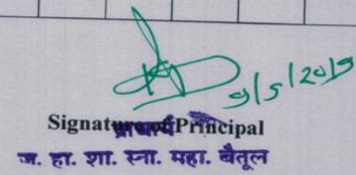 9/5/2019
Signature of Principal
प्राचार्य
ज. हा. शा. स्ना. महा. बैतूल